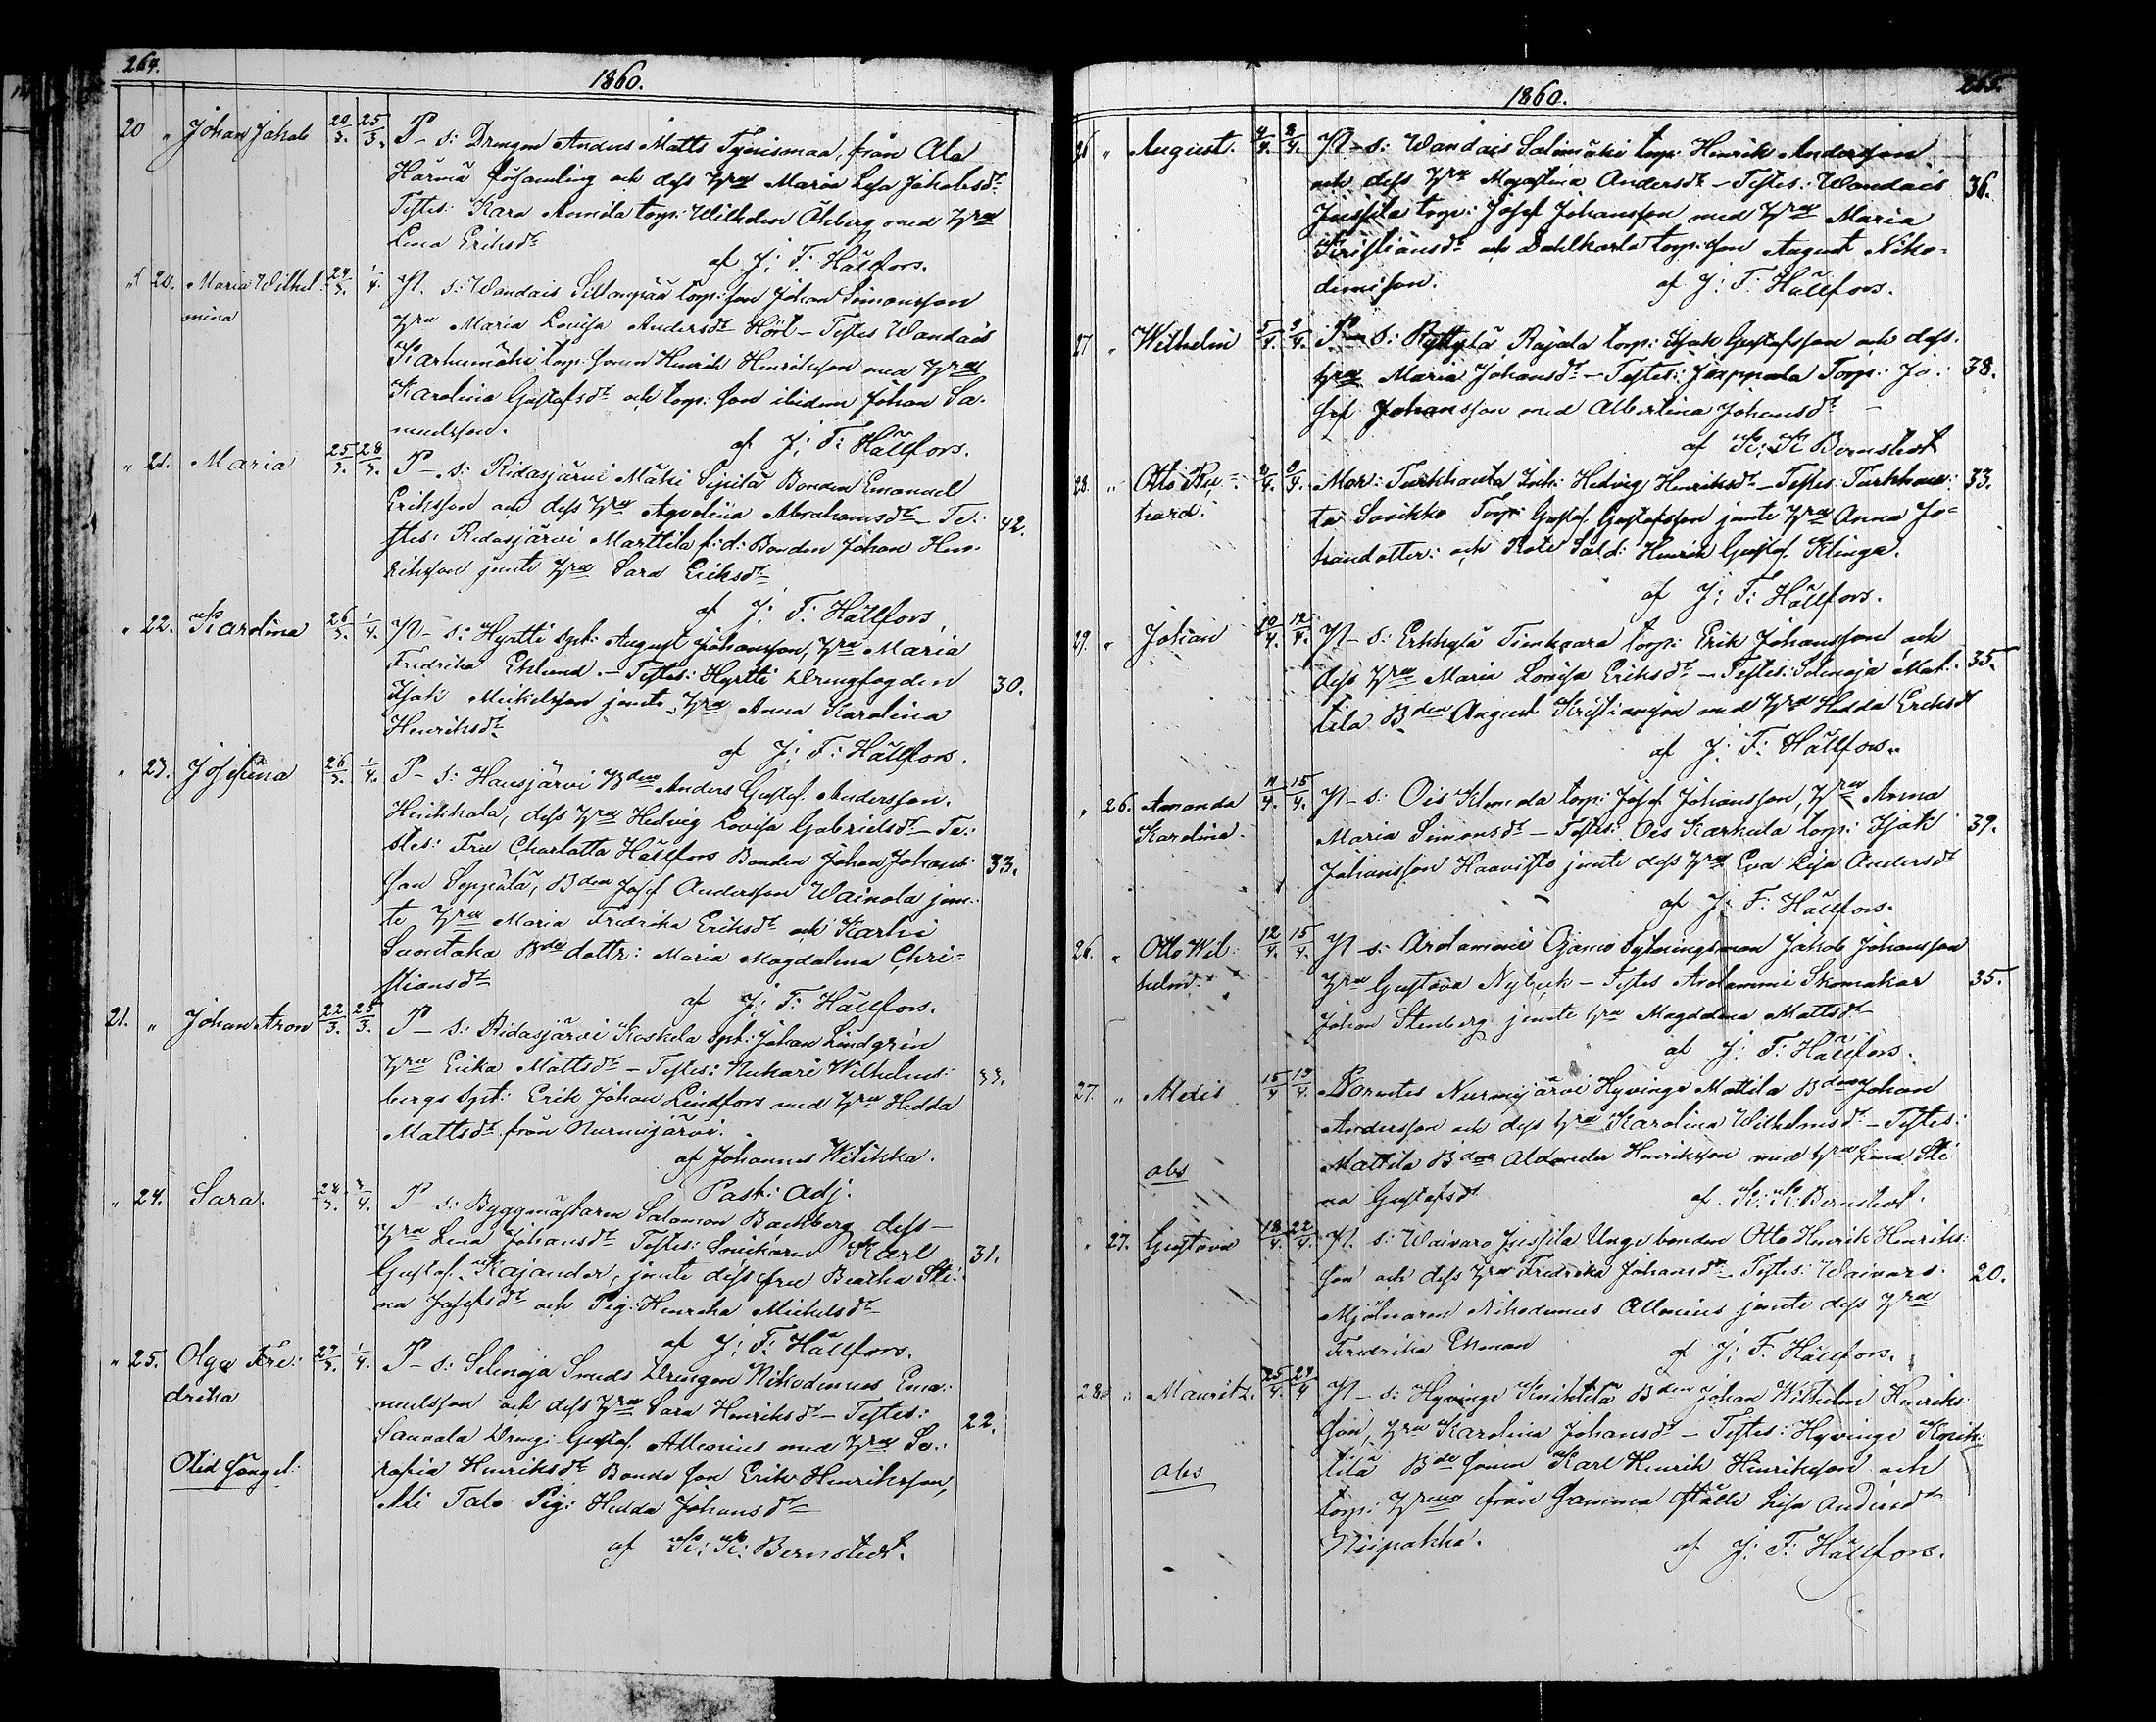 264.
1860.
20 " Johan Jakob 20/3. 25/3. P – s: Drengen Anders Matts Tynismaa, från Ala
Härmä församling och dess hru Maria Lisa Jakobsdr
Testes: Kara Annila torp: Wilhelm Öhberg med hru
Lena Eriksdr
af J: F: Hällfors.
" 20. Maria Wilhel- 24/3. 1/4. P. s: Wandais Sillanpää torp: son Johan Simonsson
mina hru Maria Lovisa Andersdr Hört – Testes Wandais
Karhumäki torp: sonen Henrik Henriksson med hru
Karolina Gustafsdr och torp: son ibidem Johan Sa-
muelsson.
af J: F: Hällfors.
" 21. Maria 25/3. 28/3. P – s: Ridasjärvi Mäki Sipilä Bonden Emanuel
Eriksson och dess hru Agvelina Abrahamsdr – Te- 42.
stes: Ridasjärvi Marttila f: d: Bonden Johan Hen-
riksson jemte hru Sara Eriksdr
af J: F: Hällfors,
" 22. Karolina 26/3. 1/4. P – s: Hyrtti spt: August Johansson, hru Maria
Fredrika Eklund. – Testes: Hyrtti Drengfogden 30.
Isak Mickelsson jemte hru Anna Karolina
Henriksdr
af J: F: Hällfors.
" 23. Josefina 26/3. 1/4. P – s: Hausjärvi Bden Anders Gustaf Andersson
Hirkkala, dess hru Hedvig Lovisa Gabrielsdr – Te-
stes: Fru Charlotta Hällfors Bonden Johan Johans- 33.
son Seppälä, Bden Josef Andersson Wainola jem-
te hru Maria Fredrika Eriksdr och Karhi
Suontaka Bde dottr: Maria Magdalena Chri-
stiansdr
af J: F: Hällfors.
21. " Johan Aron 22/3. 25/3. P – s: Ridasjärvi Koskela spt: Johan Lindgrén
hru Erika Mattsdr – Testes: Nukari Wilhelms- 33.
bergs spt: Erik Johan Lindfors med hru Hedda
Mattsdr från Nurmijärvi.
af Johannes Wilikka.
Past: adj.
" 24. Sara. 28/3. 3/4. P – s: Byggmästaren Salomon Backberg dess
hru Lena Johansdr Testes: Snickaren Karl 31.
Gustaf Kajander, jemte dess fru Beatha Sti-
na Josefsdr och Pig: Henrika Mickelsdr
af J: F: Hällfors.
" 25. Olga Fre- 27/3. 1/4. P – s: Selenoja Smeds Drengen Nikodemus Ema-
drika nuelsson och dess hru Sara Henriksdr – Testes: 22.
Sauvala Dreng: Gustaf Allenius med hru Se-
rafia Henriksdr Bonde son Erik Henriksson,
Ali Talo Pig: Hedda Johansdr
af K: K: Bernstedt.
265.
1860.
26 " August. 4/4. 8/4. P – s: Wandais Salimäki torp: Henrik Andersson
och dess hru Andersdr – Testes: Wandais 36.
Jussila torp: Josef Johansson med hru Maria
Kristiansdr och Dahlkarla torp: son August Niko-
demisson.
af J: F: Hällfors.
27 " Wilhelm 5/4. 9/4. P – s: Ryttylä Rajala torp: Isak Gustafsson och dess
hru Maria Johansdr – Testes: Jaappala Torp: Jo- 38.
sef Johansson med Albertina Johansdr –
af K: K: Bernstedt
28. " Otto Ri- 4/4. 9/4. Mor: Turkhauta Inh: Hedvig Henriksdr – Testes: Turkhau- 33.
kard. ta Sorikko Torp: Gustaf Gustafsson jemte hru Anna Jo-
handotter: och Rote Sold: Henrik Gustaf Klinga.
af J: F: Hällfors.
29. " Johan 10/4. 12/4. P – s: Erkkylä Tienhaara torp: Erik Johansson och
dess hru Maria Lovisa Eriksdr – Testes: Selenoja Mat- 35.
tila Bden August Kristiansson med hru Hedda Eriksdr
af J: F: Hällfors.
" 26. Amanda 11/4. 15/4. P – s: Ois Klemola torp: Josef Johansson, hru Anna
Karolina. Maria Simonsdr – Testes: Ois Karhula torp: Isak 39.
Johansson Haavisto jemte dess hru Eva Lisa Andersdr
af J: F: Hällfors.
26. " Otto Wil- 12/4. 15/4. P – s: Arolammi Ojanus Sytningsman Jakob Johansson
helm. hru Gustava Nyberg – Testes Arolammi Skomakar 35.
Johan Stenberg jemte hru Magdalena Mattsdr
af J: F: Hällfors.
27. " Alexis 15/4 19/4. Parentes Nurmijärvi Hyvinge Mattila Bden Johan
Andersson och dess hru Karolina Wilhelmsdr – Testes:
obs Mattila Bden Alexander Henriksson med hru Lena Sti
na Gustafsdr
af K: K: Bernstedt.
" 27. Gustava 18/4. 22/4. P. s: Waivaro Jussila Unge bonden Otto Henrik Henriks-
son och dess hru Fredrika Johansdr – Testes: Waivaro 20.
Mjölnaren Nikodemus Allenius jemte dess hru
Fredrika Ekman
af J: F: Hällfors.
28. " Mauritz. 25/4. 29/4 P – s: Hyvinge Knihtilä Bden Johan Wilhelm Henriks-
son, hru Karolina Johansdr – Testes: Hyvinge Knih-
obs tilä Bde sonen Karl Henrik Henriksson och
torp: hrun från samma ställe Lisa Andersdr
Niipakka.
af J: F: Hällfors.